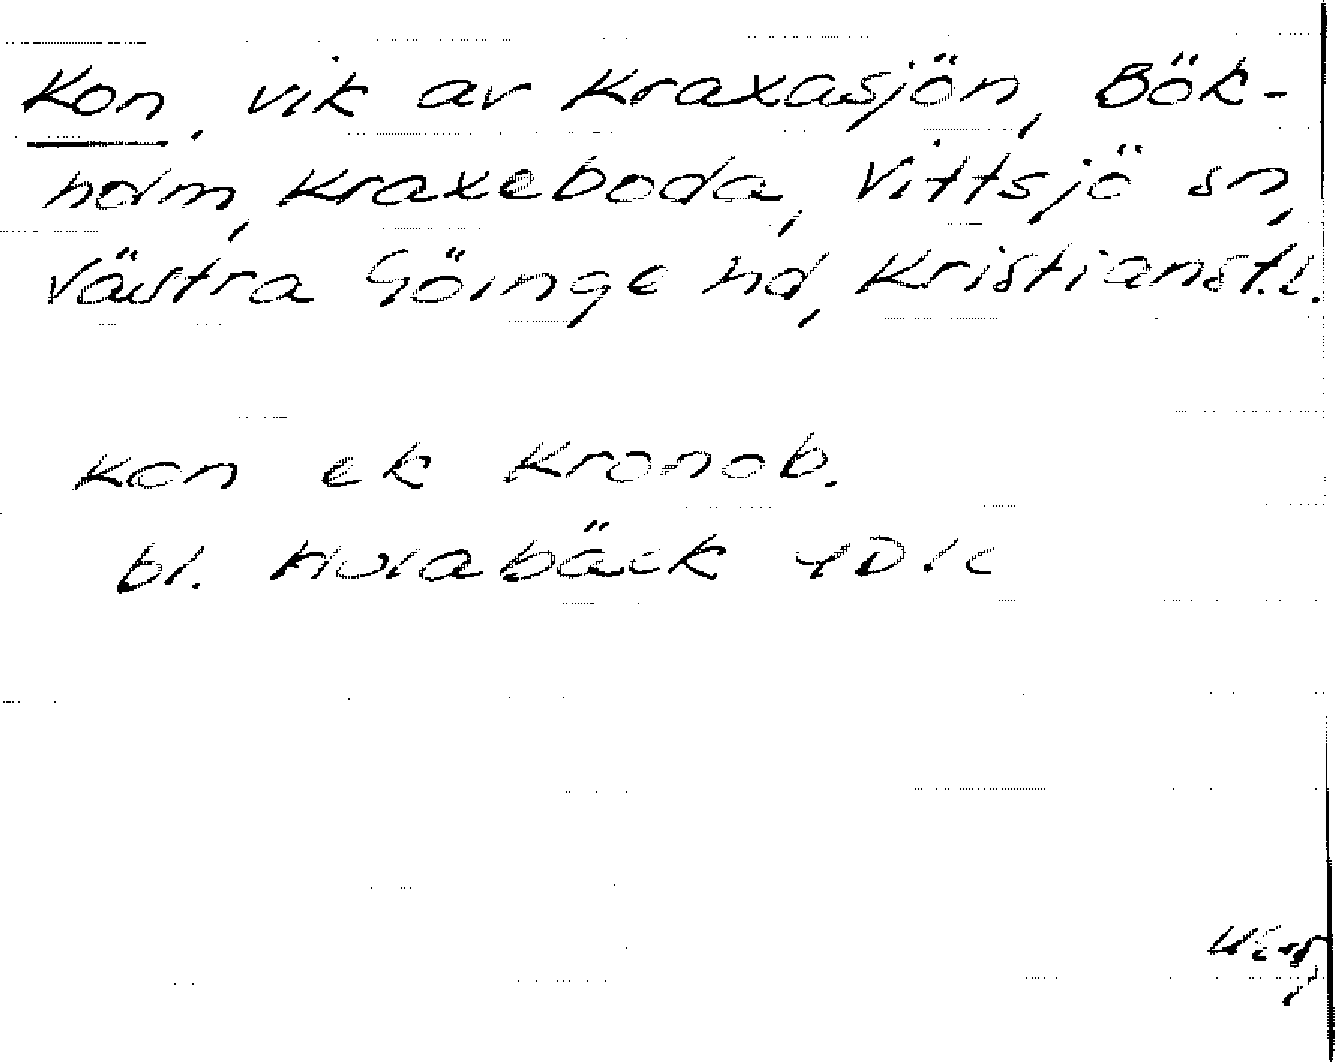 Kon, vik av Kraxasjön, Bök-
holm, Kraxeboda, Vittsjö sn,
Västra Göinge hd, Kristianst.l.
kon ek Kronob.
bl. Hurabäck 4D1c